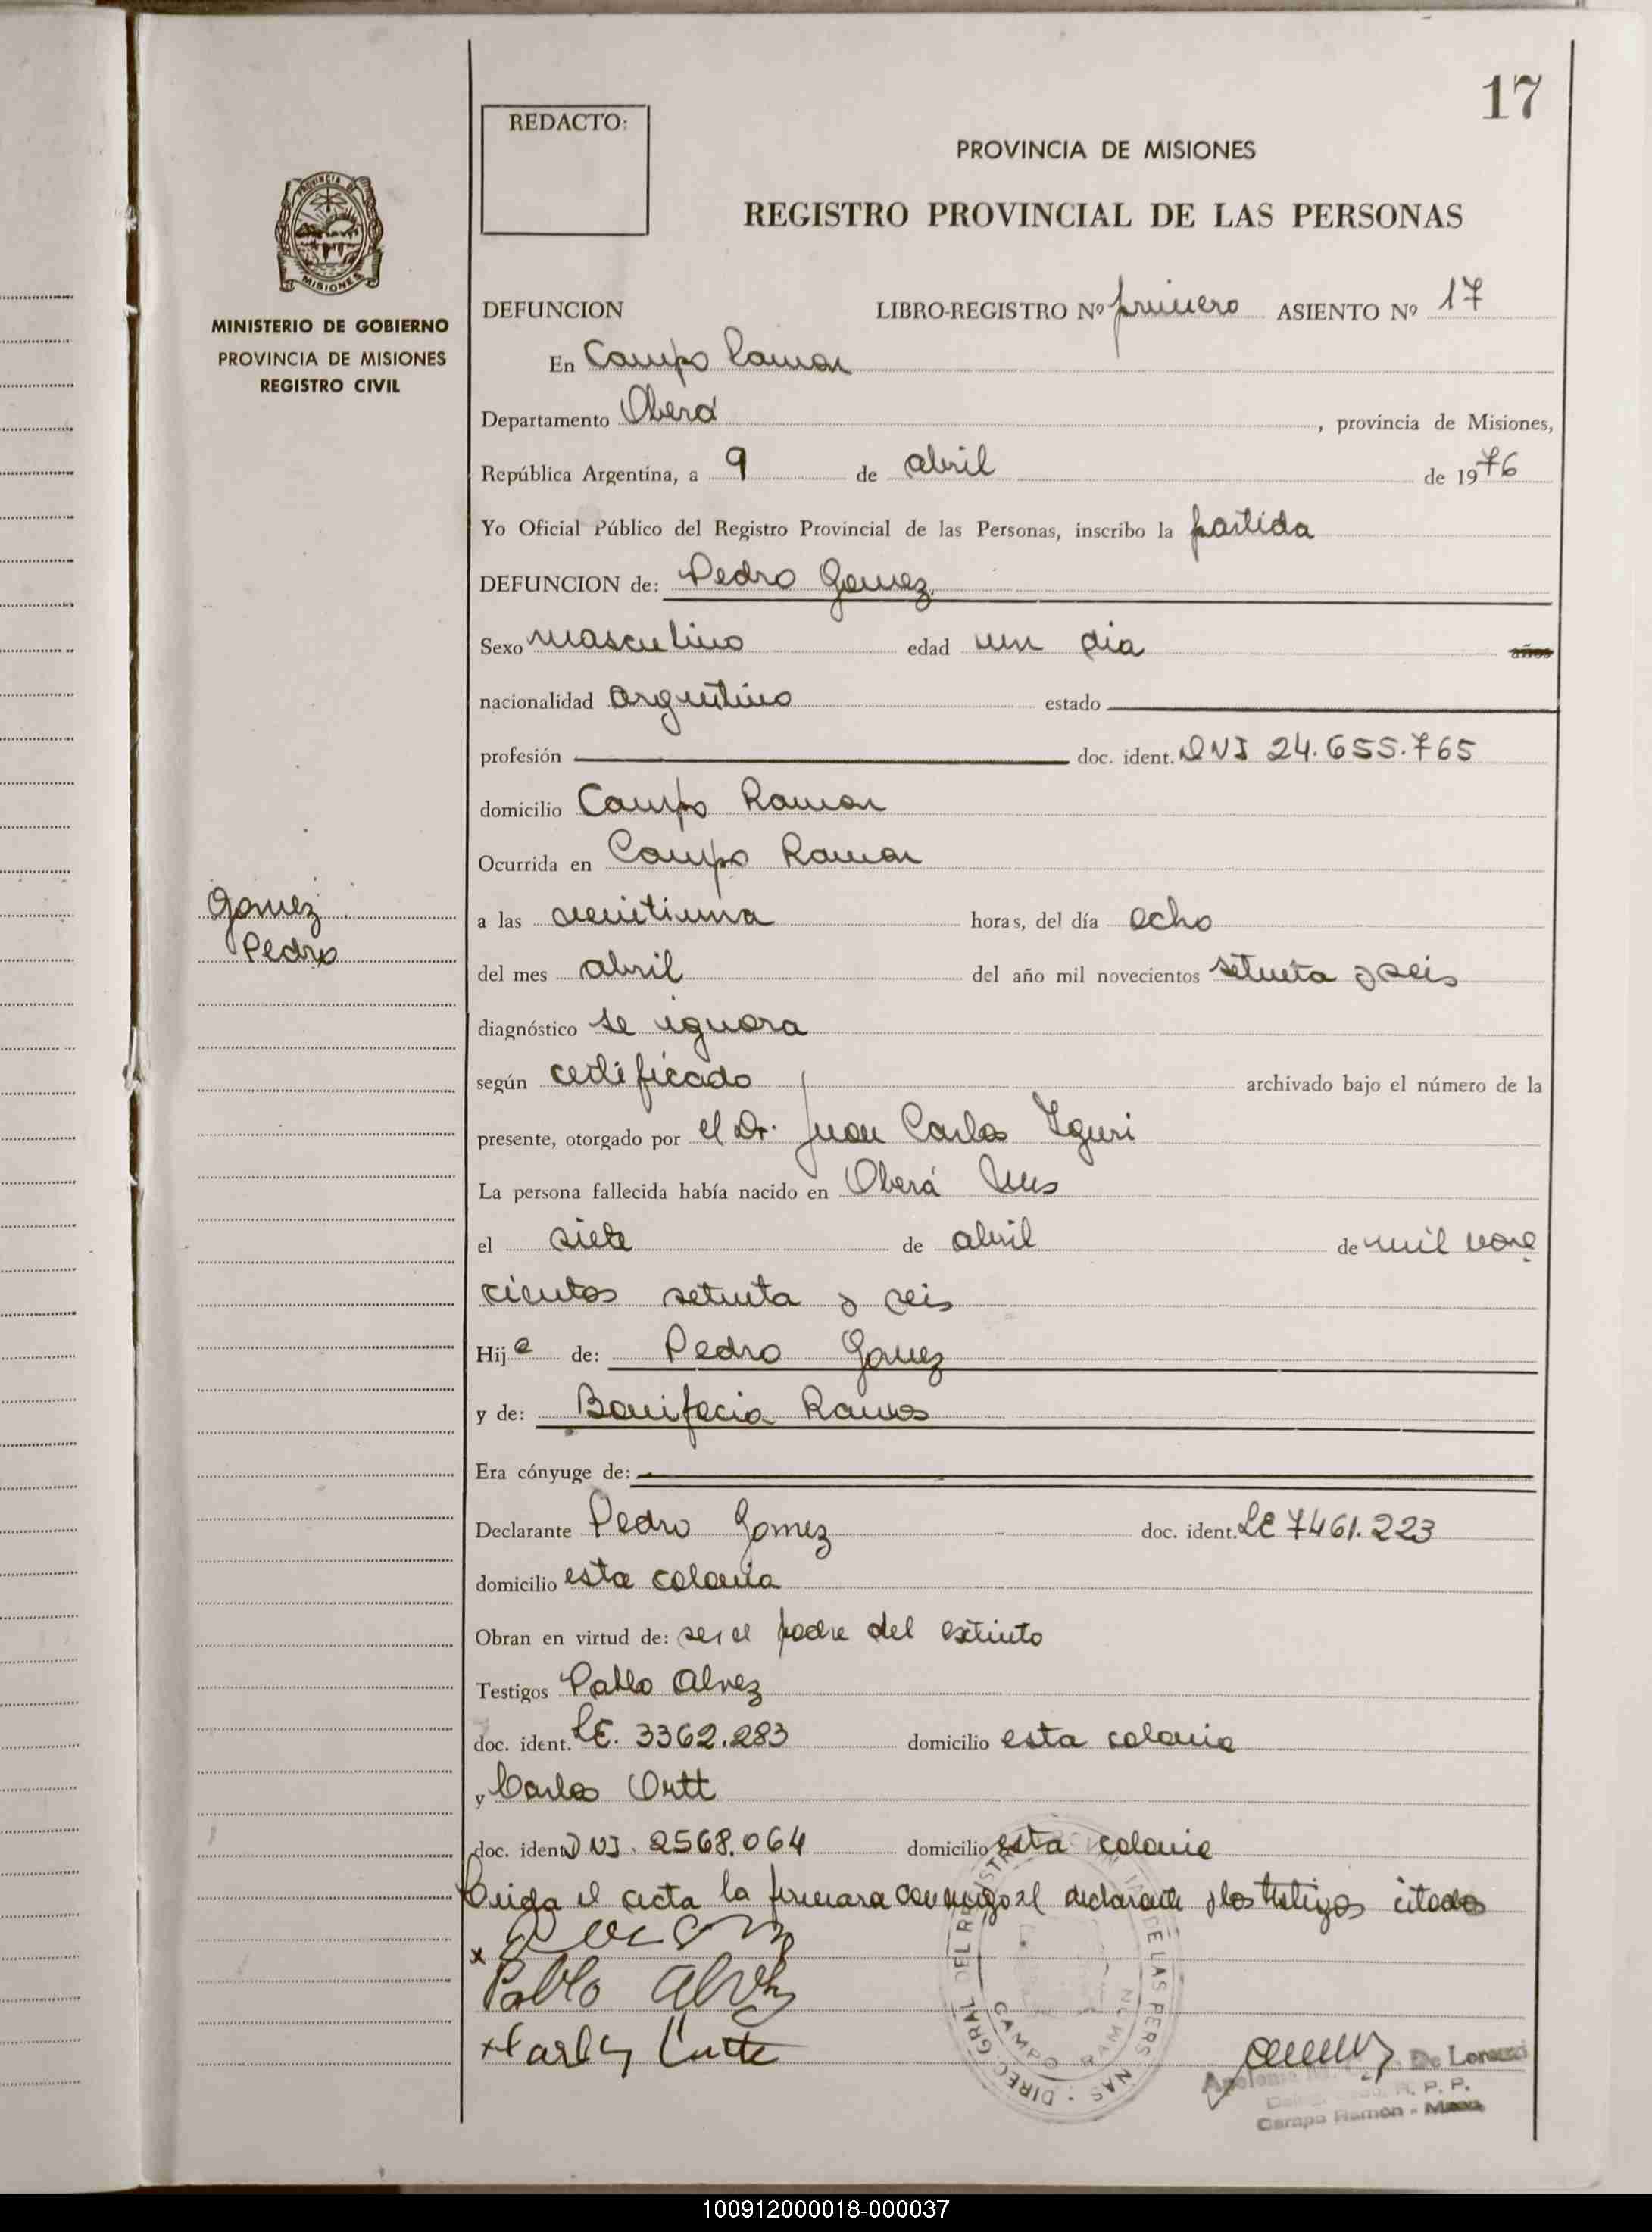 17
REDACTO:
PROVINCIA DE MISIONES
REGISTRO PROVINCIAL DE LAS PERSONAS
PROVINCIA DE
MISIONES
MINISTERIO DE GOBIERNO
PROVINCIA DE MISIONES
REGISTRO CIVIL
DEFUNCION LIBRO-REGISTRO Nº primero ASIENTO Nº 17
En Campo Ramon
Departamento Oberá, provincia de Misiones,
República Argentina, a 9 de abril de 1976
Yo Oficial Público del Registro Provincial de las Personas, inscribo la partida
DEFUNCION de: Pedro Gomez
Sexo masculino edad un dia años
nacionalidad argentino estado
profesión doc. ident. DNI 24.655.765
domicilio Campo Ramon
Ocurrida en Campo Ramon
Gomez
Pedro
a las veintiuna horas, del día ocho
del mes abril del año mil novecientos setenta y seis
diagnóstico se ignora
según certificado archivado bajo el número de la
presente, otorgado por el Dr. Juan Carlos Yguri
La persona fallecida había nacido en Oberá Mns
el siete de abril de mil nove
cientos setenta y seis
Hijo de: Pedro Gomez
y de: Bonifacia Ramos
Era cónyuge de:
Declarante Pedro Gomez doc. ident. LE 7461.223
domicilio esta colonia
Obran en virtud de: ser el padre del extinto
Testigos Pablo Alvez
doc. ident. LE. 3362.283 domicilio esta colonia
y Carlos Ortt
doc. ident DNI. 2568.064 domicilio esta colonia
Leida el acta la firmara conmigo el declarante y los testigos citados
Pablo Alvez
DIREC. GRAL. DEL REGISTRO DE LAS PERSONAS
CAMPO RAMON
De Lorenzi
R. P. P.
Campo Ramón - Mnes.
100912000018-000037